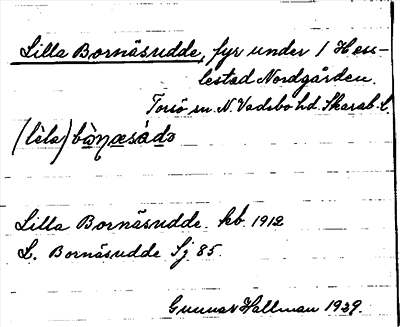 Lilla Bornäsudde, fyr under 1 Hen-
lestad Nordgården.
Torsö sn. N. Vadsbo hd. Skarab. l.
(lèla) bò̱ŋæsàdə
Lilla Bornäsudde. kb. 1912
L. Bornäsudde Sj 85.
Gunnar Hallman 1939.